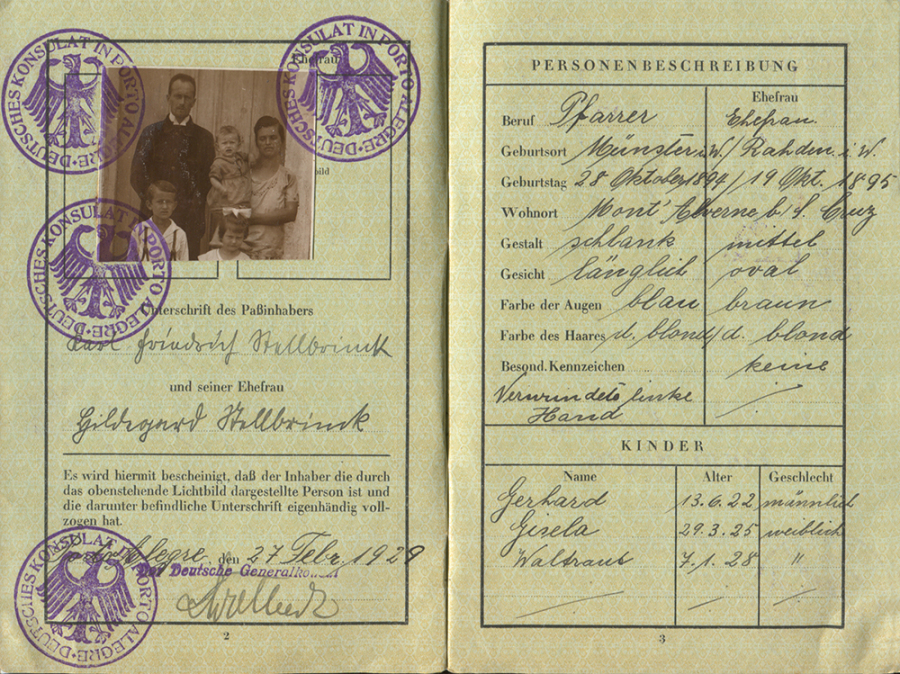 DEUTSCHES KONSULAT IN PORTO ALEGRE
DEUTSCHES KONSULAT IN PORTO ALEGRE
Ehefrau
bild
DEUTSCHES KONSULAT IN PORTO ALEGRE
Unterschrift des Paßinhabers
Karl Friedrich Stellbrinck
und seiner Ehefrau
Hildegard Stellbrinck
Es wird hiermit bescheinigt, daß der Inhaber die durch
das obenstehende Lichtbild dargestellte Person ist und
die darunter befindliche Unterschrift eigenhändig voll-
zogen hat.
Alegre, den 27 Febr. 1929
Der Deutsche Generalkonsul
DEUTSCHES KONSULAT IN PORTO ALEGRE
2
PERSONENBESCHREIBUNG
Ehefrau
Beruf Pfarrer Ehefrau.
Geburtsort Münster i. W. / Rahden i. W.
Geburtstag 28 Oktober 1894 / 19 Okt. 1895
Wohnort Mont' Alverne b. S. Cruz
Gestalt schlank mittel
Gesicht länglich oval
Farbe der Augen blau braun
Farbe des Haares d. blond / d. blond
Besond. Kennzeichen keine
Verwundete linke
Hand
KINDER
Name Alter Geschlecht
Gerhard 13.6.22 männlich
Gisela 29.3.25 weiblich
Waltraut 7.1.28 "
3